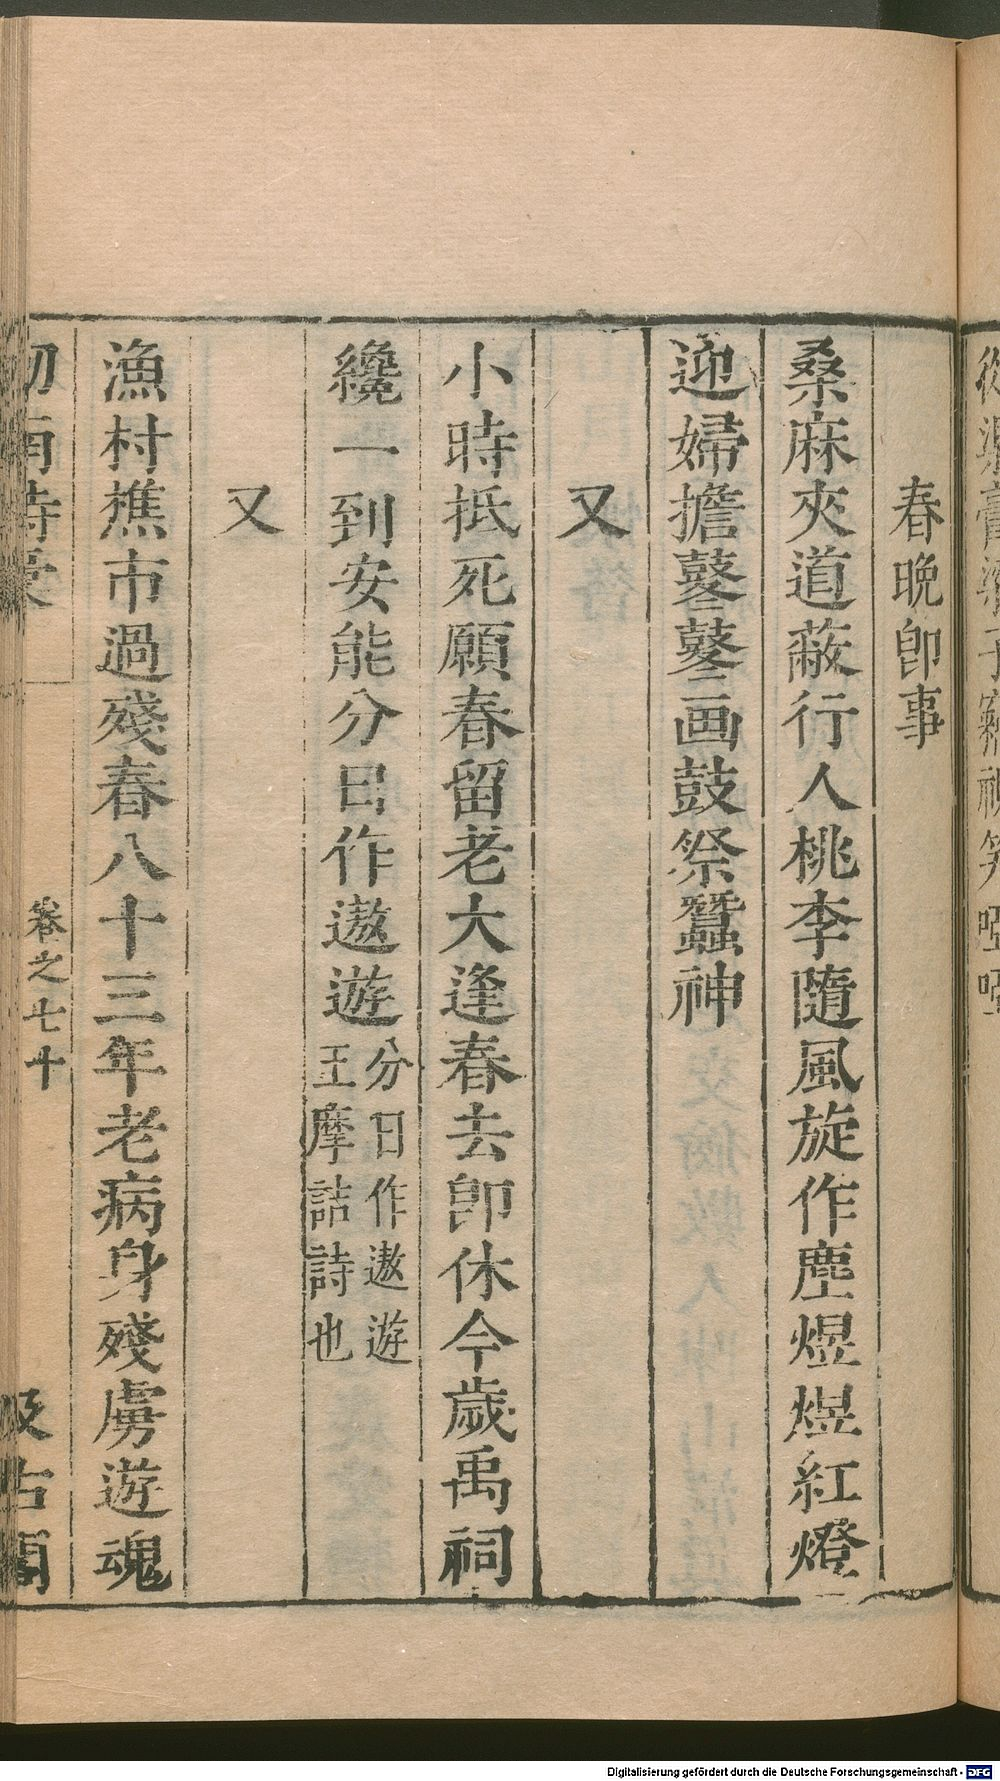 春晚卽事
桑麻夾道蔽行人桃李隨風旋作塵煜煜紅燈
迎婦擔鼕鼕畫鼓祭蠶神
又
小時抵死願春留老大逢春去卽休今歲禹祠
纔一到安能分日作遨遊分日作遨遊王摩詰詩也
又
漁村樵市過殘春八十三年老病身殘虜遊魂
卷之七十
Digitalisierung gefördert durch die Deutsche Forschungsgemeinschaft - DFG